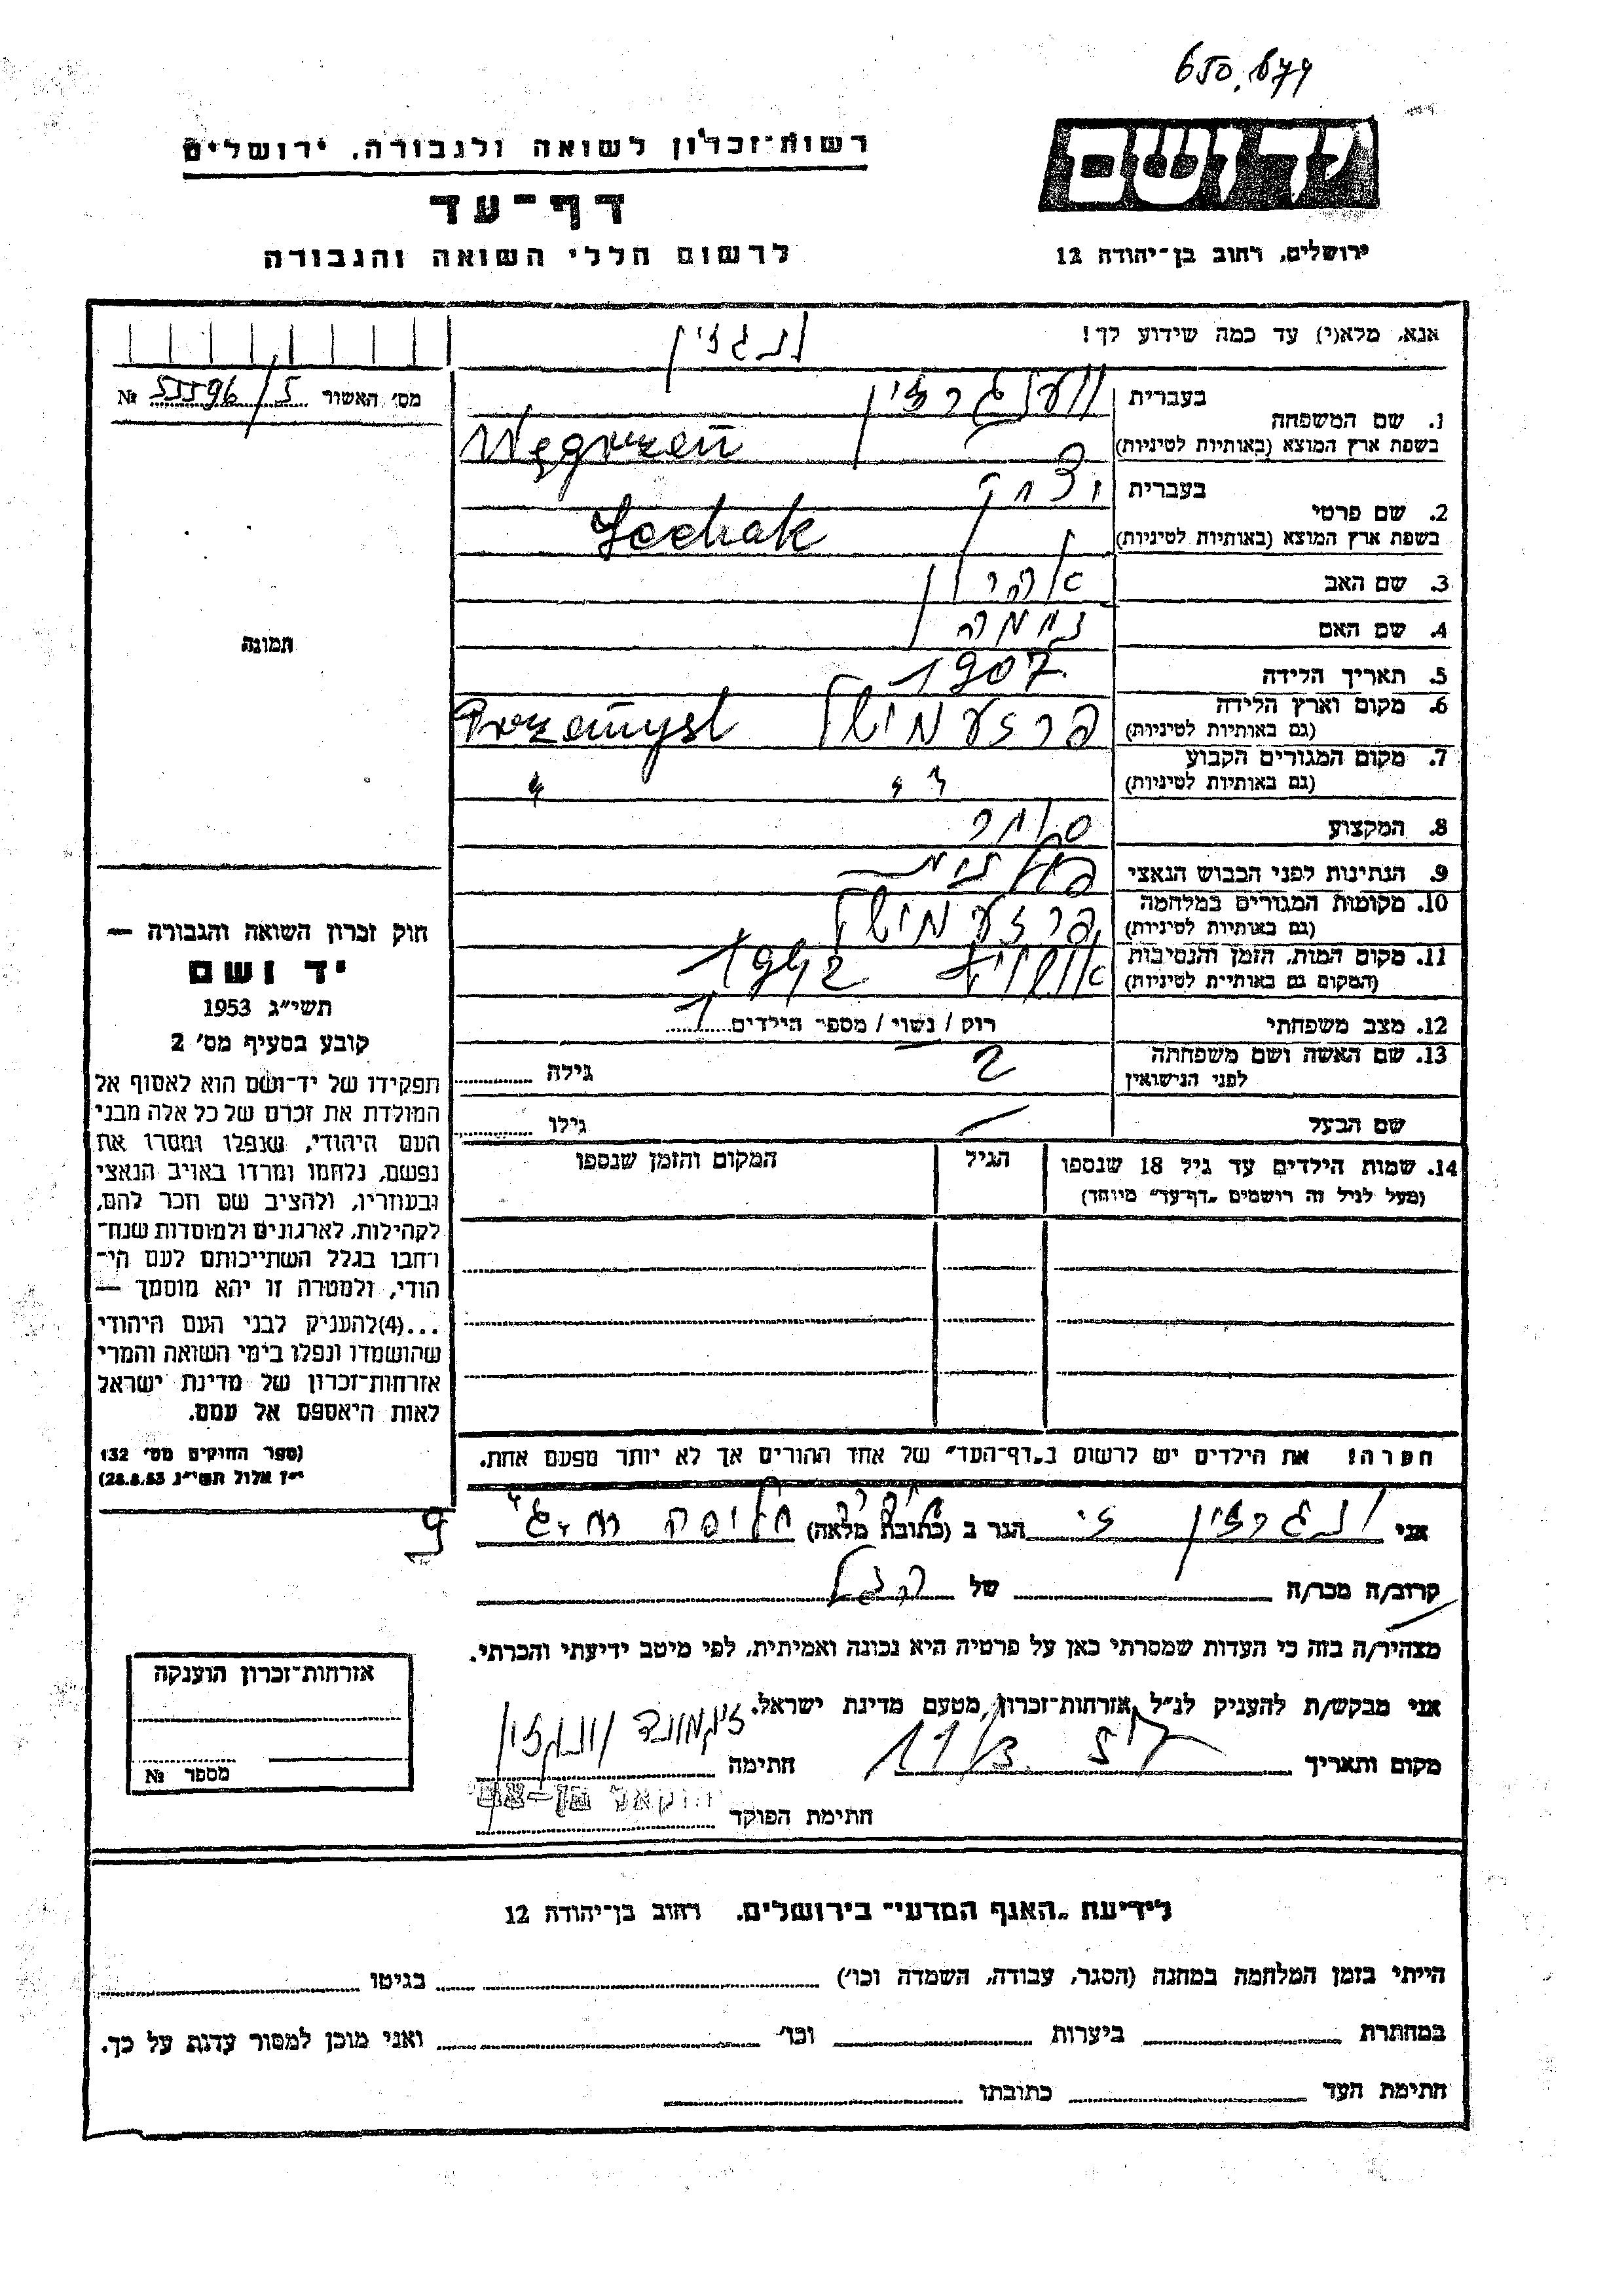 650.679
רשות־זכרון לשואה ולגבורה, ירושלים
יד ושם
דף־עד
לרשום חללי השואה והגבורה
ירושלים, רחוב בן־יהודה 12
אנא, מלא(י) עד כמה שידוע לך!
ונגזין
מס' האשור 5/55596 №
1. שם המשפחה
בעברית
בשפת ארץ המוצא (באותיות לטיניות)
Węgrzeń
2. שם פרטי
בעברית יצחק
בשפת ארץ המוצא (באותיות לטיניות)
Icchak
3. שם האב אהרון
4. שם האם נחמה
5. תאריך הלידה 1907
6. מקום וארץ הלידה
(גם באותיות לטיניות)
פרזעמישל Przemyśl
7. מקום המגורים הקבוע
(גם באותיות לטיניות)
" "
8. המקצוע סוחר
9. הנתינות לפני הכבוש הנאצי פולנית
10. מקומות המגורים במלחמה
(גם באותיות לטיניות)
פרזעמישל
11. מקום המות, הזמן והנסיבות
(המקום גם באותיות לטיניות)
1942
12. מצב משפחתי רוק / נשוי / מספר הילדים 1
13. שם האשה ושם משפחתה
לפני הנישואין
? גילה
שם הבעל גילו
14. שמות הילדים עד גיל 18 שנספו
(מעל לגיל זה רושמים „דף־עד" מיוחד)
הגיל
המקום והזמן שנספו
תמונה
חוק זכרון השואה והגבורה —
יד ושם
תשי״ג 1953
קובע בסעיף מס' 2
תפקידו של יד־ושם הוא לאסוף אל
המולדת את זכרם של כל אלה מבני
העם היהודי, שנפלו ומסרו את
נפשם, נלחמו ומרדו באויב הנאצי
ובעוזריו, ולהציב שם וזכר להם,
לקהילות, לארגונים ולמוסדות שנח־
רחבו בגלל השתייכותם לעם הי־
הודי, ולמטרה זו יהא מוסמך —
...(4)להעניק לבני העם היהודי
שהושמדו ונפלו בימי השואה והמרי
אזרחות־זכרון של מדינת ישראל
לאות היאספם אל עמם.
(ספר החוקים מס' 132
י״ז אלול תשי״ג 28.8.53)
הערה! את הילדים יש לרשום ב„דף־העד" של אחד ההורים אך לא יותר מפעם אחת.
אני ונגרזין זי הגר ב (כתובת מלאה) חיפה 9
קרוב/ה מכר/ה של הנ״ל
מצהיר/ה בזה כי העדות שמסרתי כאן על פרטיה היא נכונה ואמיתית, לפי מיטב ידיעתי והכרתי.
אני מבקש/ת להעניק לנ״ל אזרחות־זכרון מטעם מדינת ישראל.
מקום ותאריך 11/3 חתימה זיגמונד ונגזין
חתימת הפוקד
אזרחות־זכרון הוענקה
מספר №
לידיעת „האגף המדעי" בירושלים, רחוב בן־יהודה 12
הייתי בזמן המלחמה במחנה (הסגר, עבודה, השמדה וכו') בגיטו
במחתרת ביערות וכו' ואני מוכן למסור עדות על כך.
חתימת העד כתובתו